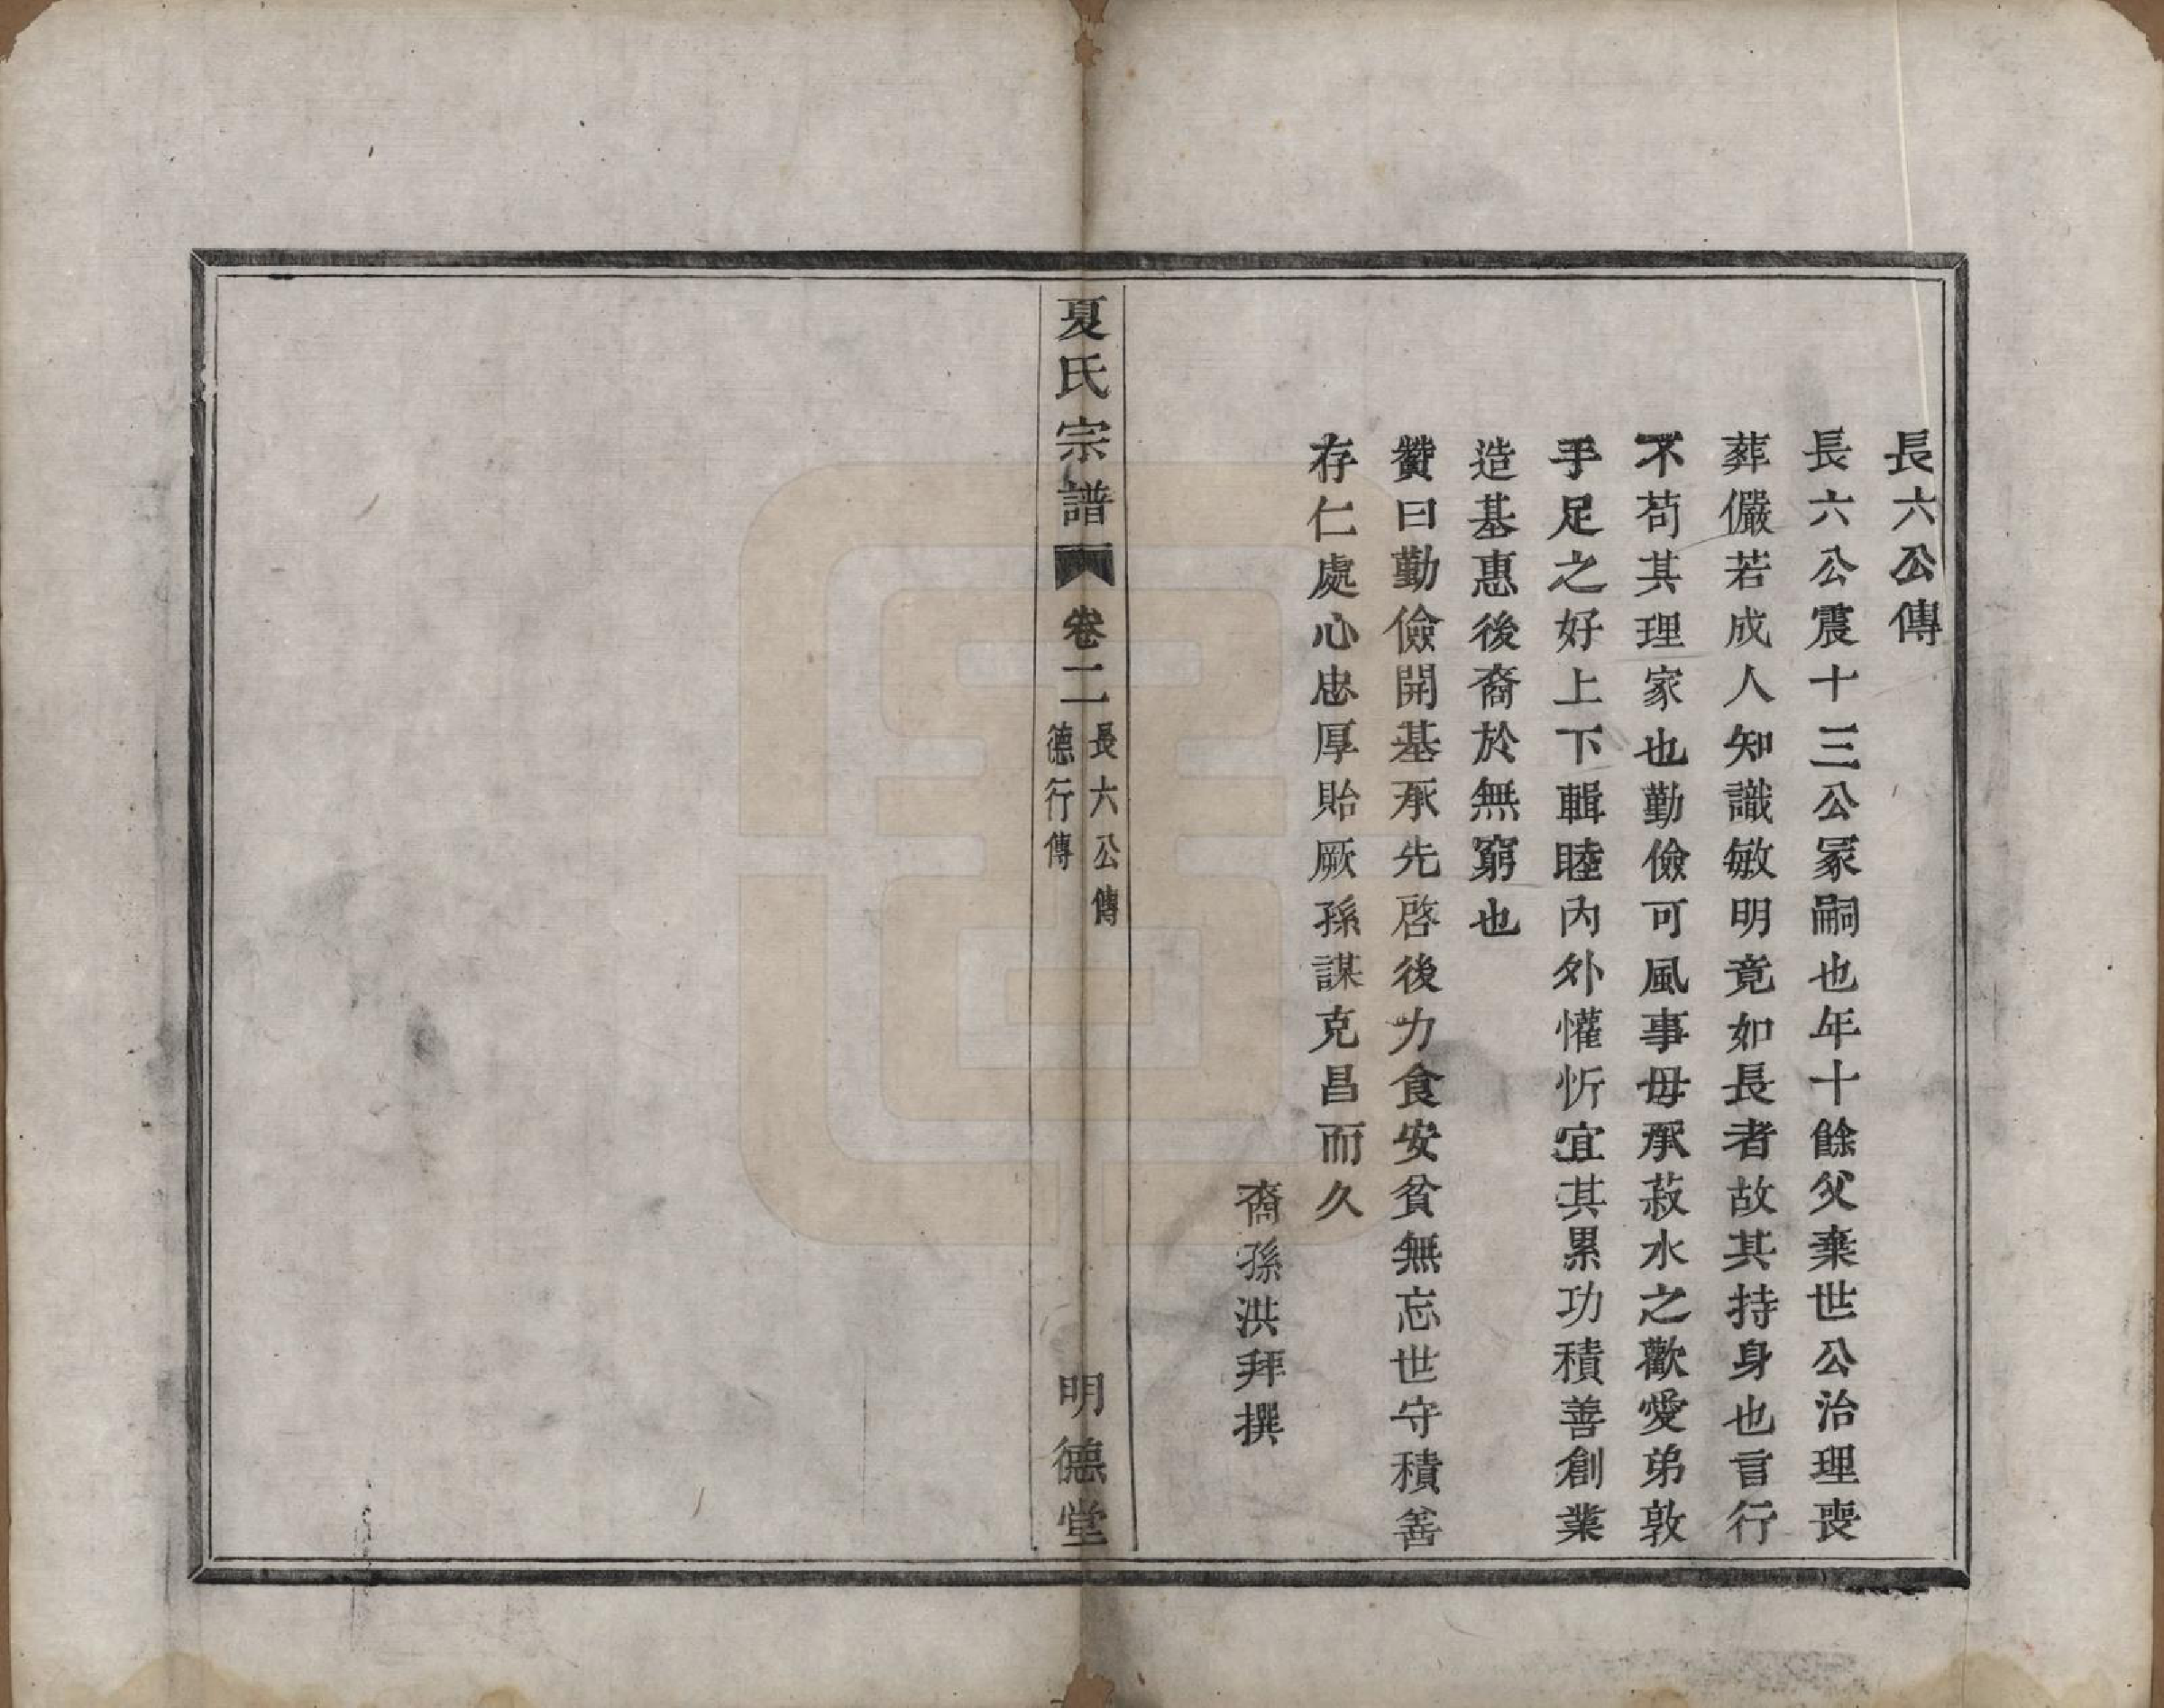 長六公傳
長六公震十三公冢嗣也年十餘父棄世公治理喪
葬儼若成人知識敏明竟如長者故其持身也言行
不苟其理家也勤儉可風事毋承菽水之歡愛弟敦
手足之好上下輯睦內外懽忻宜其累功積善創業
造基惠後裔於無窮也
贊曰勤儉開基承先啓後力食安貧無忘世守積善
存仁處心忠厚貽厥孫謀克昌而久
裔孫洪拜撰
夏氏宗譜
卷二
長六公傳
德行傳
明德堂